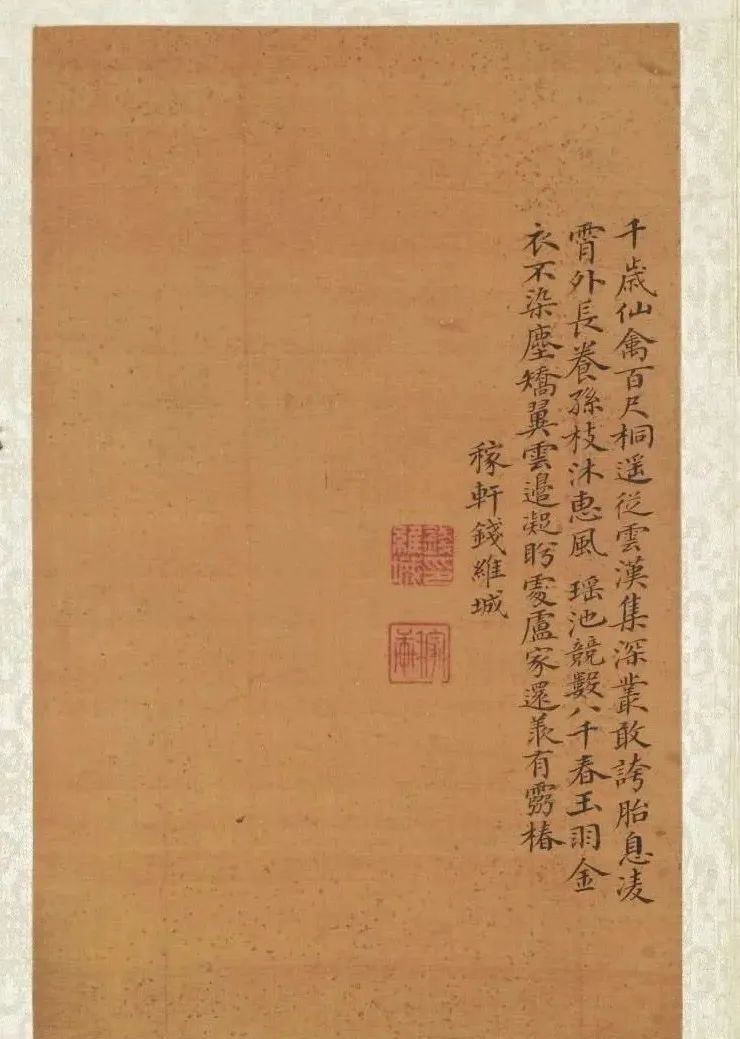 千歳仙禽百尺桐遥從雲漢集深叢敢誇胎息凌
霄外長養孫枝沐惠風瑶池競數八千春玉羽金
衣不染塵矯翼雲邊凝盼處盧家還羨有靈椿
稼軒錢維城
錢印維城
稼軒